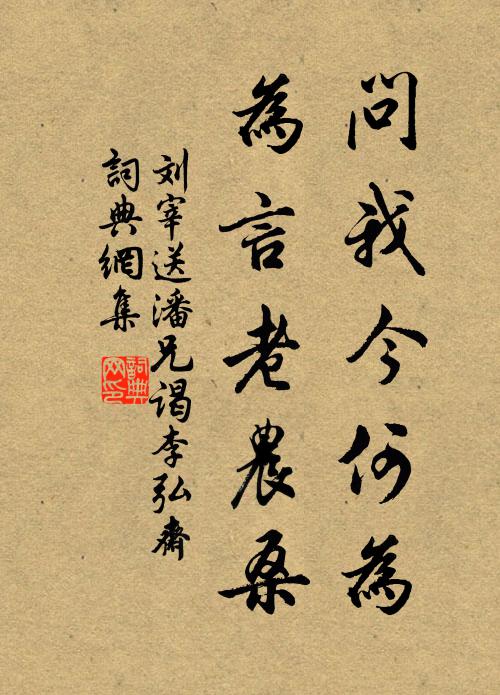 問我今何為
為言老農桑
刘宰送潘兄谒李弘斋
詞典網集
詞典
网印